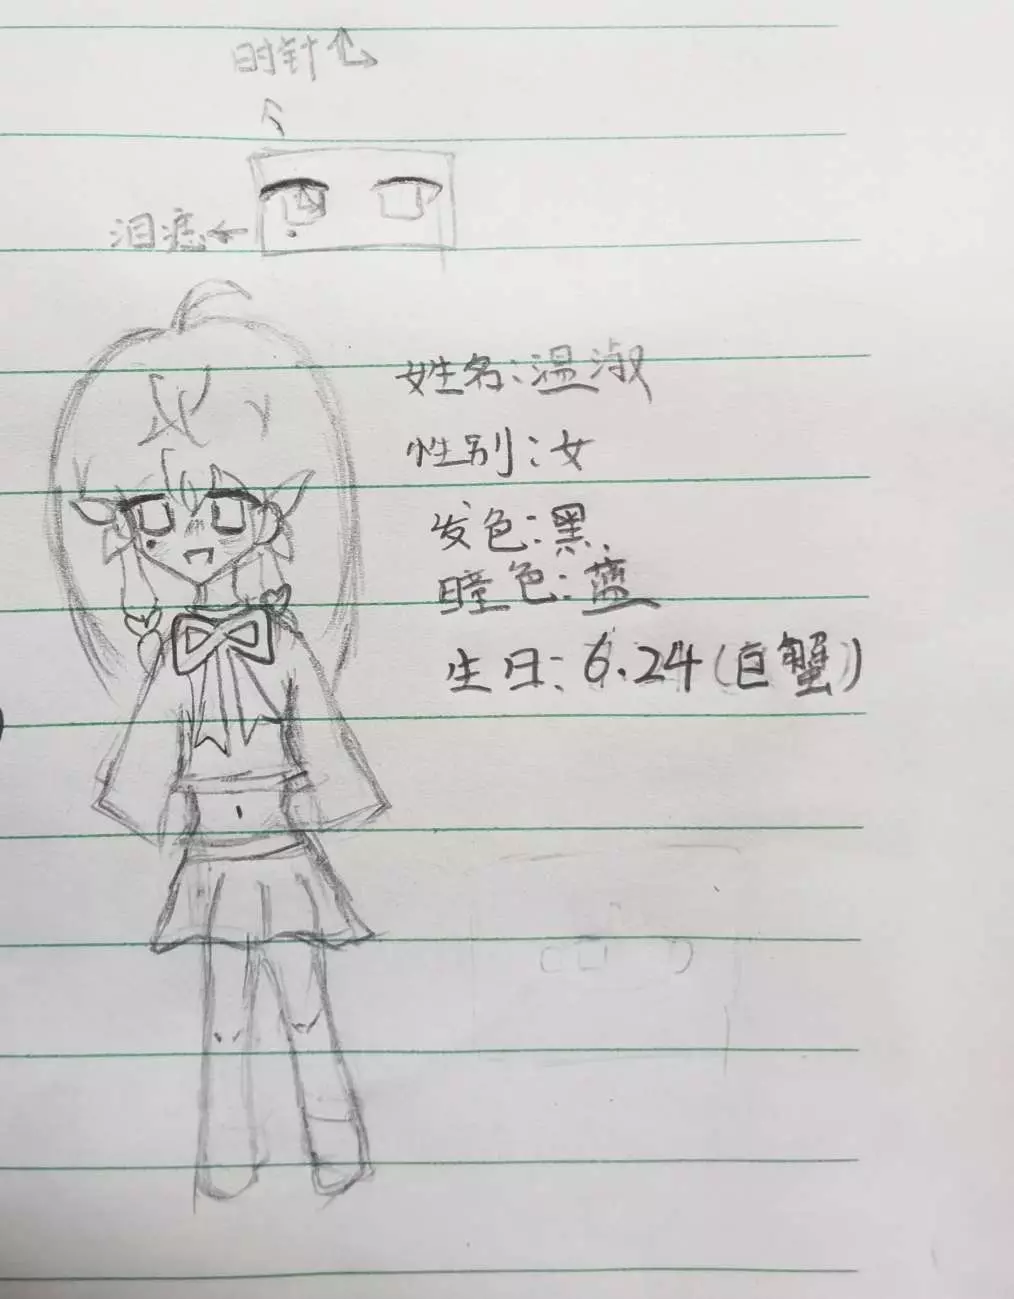 时针
泪痣
姓名:温淑
性别:女
发色:黑
瞳色:蓝
生日:6.24(巨蟹)